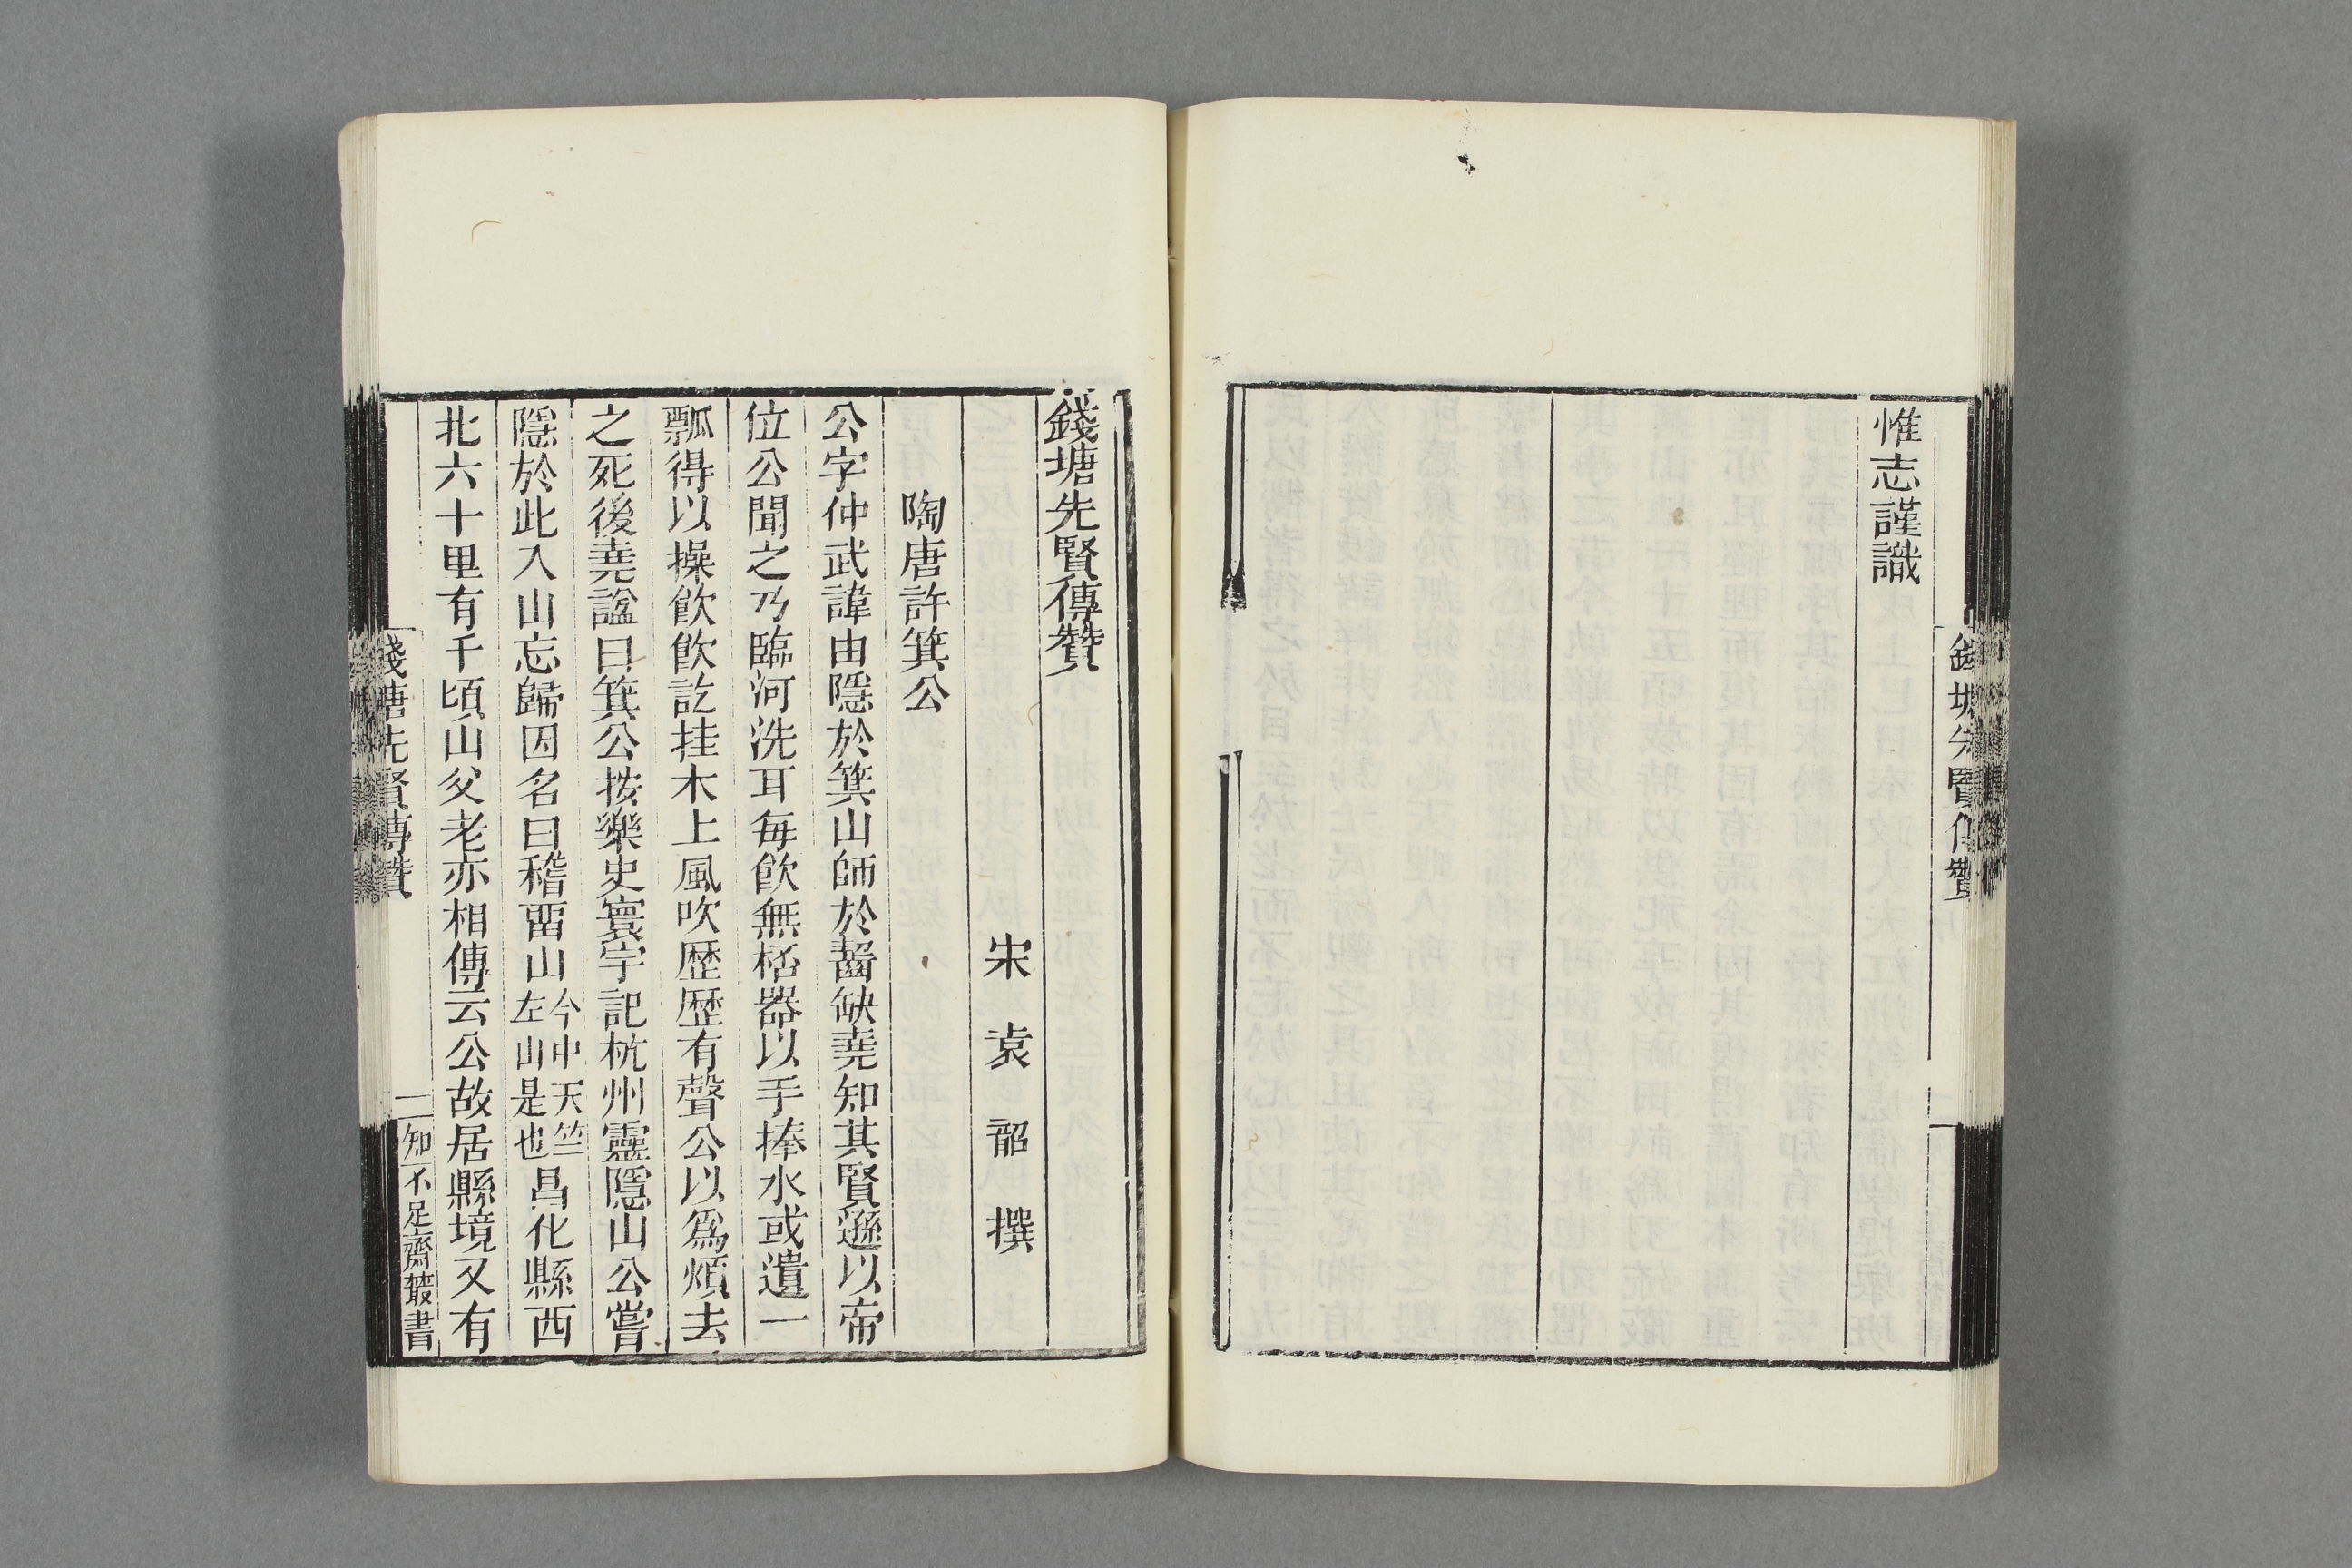 惟志謹識
錢塘先賢傳贊
錢塘先賢傳贊
宋袁韶撰
陶唐許箕公
公字仲武諱由隱於箕山師於齧缺堯知其賢遜以帝
位公聞之乃臨河洗耳每飲無桮器以手捧水或遺一
瓢得以操飲飲訖挂木上風吹歷歷有聲公以爲煩去
之死後堯諡曰箕公按樂史寰宇記杭州靈隱山公嘗
隱於此入山忘歸因名曰稽畱山今中天竺左山是也昌化縣西
北六十里有千頃山父老亦相傳云公故居縣境又有
錢塘先賢傳贊
一
知不足齋叢書